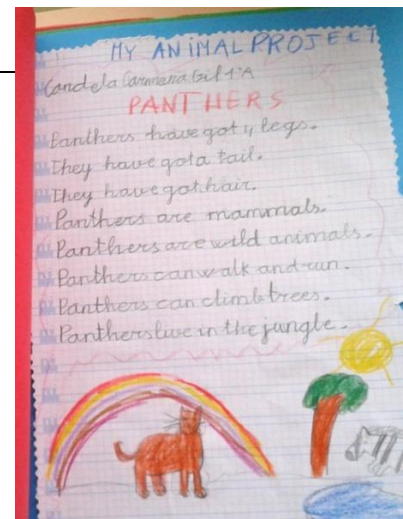 MY ANIMAL PROJECT
Candela Carmena Gil 1ºA
PANTHERS
Panthers have got 4 legs.
They have got a tail.
They have got hair.
Panthers are mammals.
Panthers are wild animals.
Panthers can walk and run.
Panthers can climb trees.
Panthers live in the jungle.